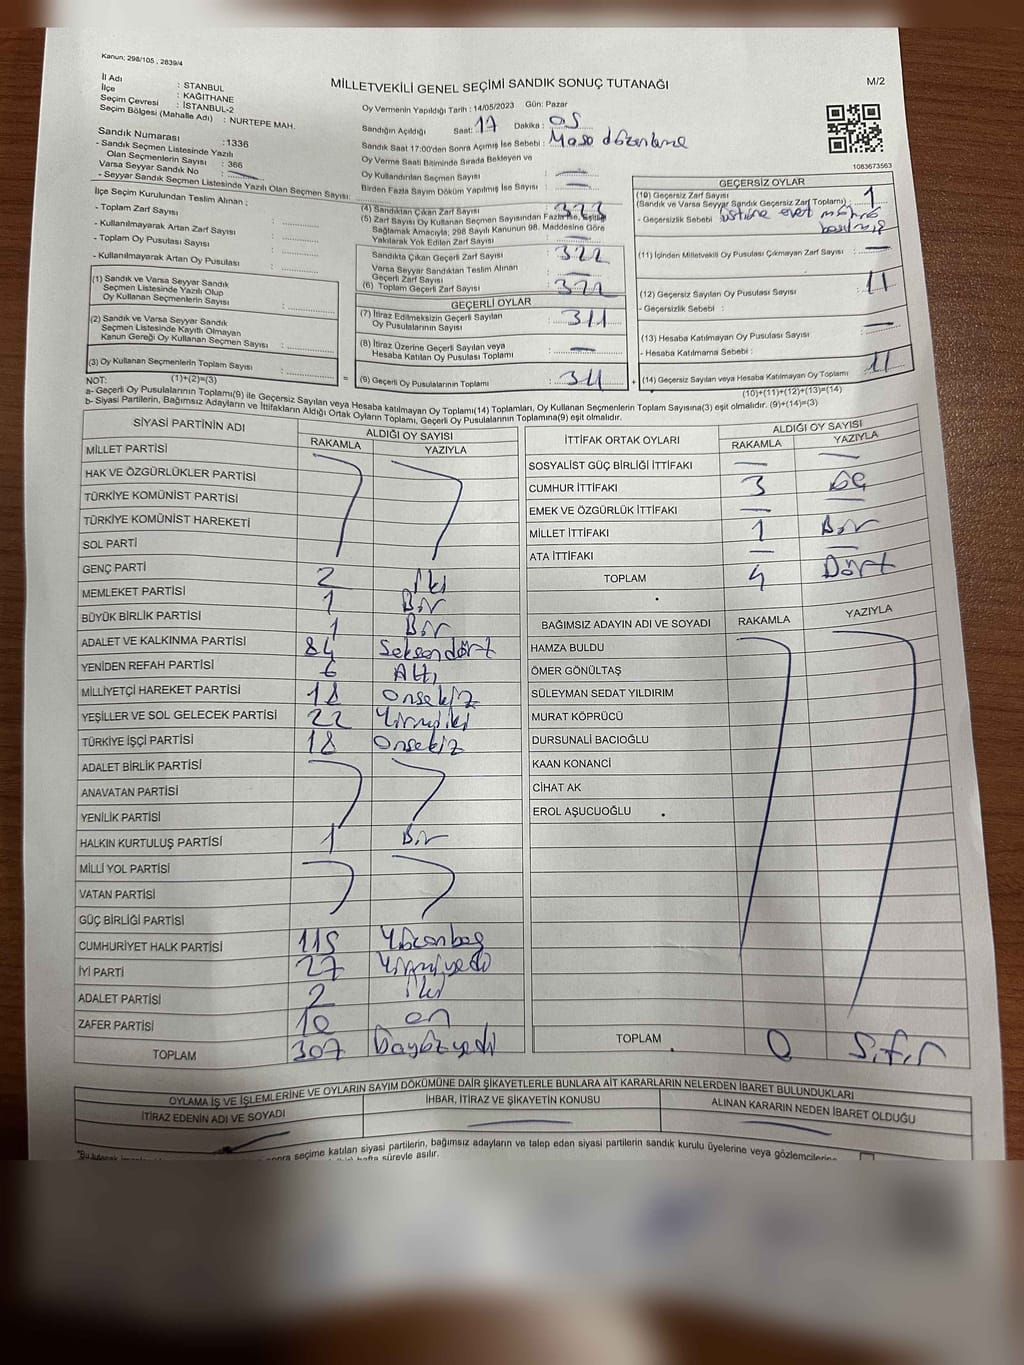 Kanun; 298/105 , 2839/4
MİLLETVEKİLİ GENEL SEÇİMİ SANDIK SONUÇ TUTANAĞI
M/2
İl Adı : STANBUL
İlçe : KAĞITHANE
Seçim Çevresi : İSTANBUL-2
Seçim Bölgesi (Mahalle Adı) : NURTEPE MAH.
Sandık Numarası :1336
- Sandık Seçmen Listesinde Yazılı
Olan Seçmenlerin Sayısı : 366
Varsa Seyyar Sandık No :
- Seyyar Sandık Seçmen Listesinde Yazılı Olan Seçmen Sayısı:
Oy Vermenin Yapıldığı Tarih : 14/05/2023 Gün: Pazar
Sandığın Açıldığı Saat: 17 Dakika : 05
Sandık Saat 17:00'den Sonra Açımış İse Sebebi : Masa düzenleme
Oy Verme Saati Bitiminde Sırada Bekleyen ve
Oy Kullandırılan Seçmen Sayısı : —
Birden Fazla Sayım Döküm Yapılmış İse Sayısı : —
1083673563
İlçe Seçim Kurulundan Teslim Alınan ;
- Toplam Zarf Sayısı :
- Kullanılmayarak Artan Zarf Sayısı :
- Toplam Oy Pusulası Sayısı :
- Kullanılmayarak Artan Oy Pusulası :
(1) Sandık ve Varsa Seyyar Sandık
Seçmen Listesinde Yazılı Olup
Oy Kullanan Seçmenlerin Sayısı :
(2) Sandık ve Varsa Seyyar Sandık
Seçmen Listesinde Kayıtlı Olmayan
Kanun Gereği Oy Kullanan Seçmen Sayısı :
(3) Oy Kullanan Seçmenlerin Toplam Sayısı :
(1)+(2)=(3)
(4) Sandıktan Çıkan Zarf Sayısı : 323
(5) Zarf Sayısı Oy Kullanan Seçmen Sayısından Fazla İse, Eşitliği
Sağlamak Amacıyla; 298 Sayılı Kanunun 98. Maddesine Göre
Yakılarak Yok Edilen Zarf Sayısı : —
Sandıkta Çıkan Geçerli Zarf Sayısı : 322
Varsa Seyyar Sandıktan Teslim Alınan
Geçerli Zarf Sayısı : —
(6) Toplam Geçerli Zarf Sayısı : 322
GEÇERLİ OYLAR
(7) İtiraz Edilmeksizin Geçerli Sayılan
Oy Pusulalarının Sayısı : 311
(8) İtiraz Üzerine Geçerli Sayılan veya
Hesaba Katılan Oy Pusulası Toplamı : —
(9) Geçerli Oy Pusulalarının Toplamı 311
GEÇERSİZ OYLAR
(10) Geçersiz Zarf Sayısı
(Sandık ve Varsa Seyyar Sandık Geçersiz Zarf Toplamı) : 1
- Geçersizlik Sebebi : üstüne evet mührü
basılmış
(11) İçinden Milletvekili Oy Pusulası Çıkmayan Zarf Sayısı : —
(12) Geçersiz Sayılan Oy Pusulası Sayısı : 11
- Geçersizlik Sebebi :
(13) Hesaba Katılmayan Oy Pusulası Sayısı : —
- Hesaba Katılmama Sebebi :
(14) Geçersiz Sayılan veya Hesaba Katılmayan Oy Toplamı : 11
(10)+(11)+(12)+(13)=(14)
NOT:
a- Geçerli Oy Pusulalarının Toplamı(9) ile Geçersiz Sayılan veya Hesaba katılmayan Oy Toplamı(14) Toplamları, Oy Kullanan Seçmenlerin Toplam Sayısına(3) eşit olmalıdır. (9)+(14)=(3)
b- Siyasi Partilerin, Bağımsız Adayların ve İttifakların Aldığı Ortak Oyların Toplamı, Geçerli Oy Pusulalarının Toplamına(9) eşit olmalıdır.
SİYASİ PARTİNİN ADI ALDIĞI OY SAYISI
RAKAMLA YAZIYLA
MİLLET PARTİSİ
HAK VE ÖZGÜRLÜKLER PARTİSİ
TÜRKİYE KOMÜNİST PARTİSİ
TÜRKİYE KOMÜNİST HAREKETİ
SOL PARTİ
GENÇ PARTİ 2 İki
MEMLEKET PARTİSİ 1 Bir
BÜYÜK BİRLİK PARTİSİ 1 Bir
ADALET VE KALKINMA PARTİSİ 84 Seksendört
YENİDEN REFAH PARTİSİ 6 Altı
MİLLİYETÇİ HAREKET PARTİSİ 18 Onsekiz
YEŞİLLER VE SOL GELECEK PARTİSİ 22 Yirmiiki
TÜRKİYE İŞÇİ PARTİSİ 18 Onsekiz
ADALET BİRLİK PARTİSİ
ANAVATAN PARTİSİ
YENİLİK PARTİSİ
HALKIN KURTULUŞ PARTİSİ 1 Bir
MİLLİ YOL PARTİSİ
VATAN PARTİSİ
GÜÇ BİRLİĞİ PARTİSİ
CUMHURİYET HALK PARTİSİ 115 Yüzonbeş
İYİ PARTİ 27 Yirmiyedi
ADALET PARTİSİ 2 İki
ZAFER PARTİSİ 10 on
TOPLAM 307
İTTİFAK ORTAK OYLARI ALDIĞI OY SAYISI
RAKAMLA YAZIYLA
SOSYALİST GÜÇ BİRLİĞİ İTTİFAKI — —
CUMHUR İTTİFAKI 3 üç
EMEK VE ÖZGÜRLÜK İTTİFAKI — —
MİLLET İTTİFAKI 1 Bir
ATA İTTİFAKI — —
TOPLAM 4 Dört
BAĞIMSIZ ADAYIN ADI VE SOYADI RAKAMLA YAZIYLA
HAMZA BULDU
ÖMER GÖNÜLTAŞ
SÜLEYMAN SEDAT YILDIRIM
MURAT KÖPRÜCÜ
DURSUNALİ BACIOĞLU
KAAN KONANCİ
CİHAT AK
EROL AŞUCUOĞLU
TOPLAM 0 Sıfır
OYLAMA İŞ VE İŞLEMLERİNE VE OYLARIN SAYIM DÖKÜMÜNE DAİR ŞİKAYETLERLE BUNLARA AİT KARARLARIN NELERDEN İBARET BULUNDUKLARI
İTİRAZ EDENİN ADI VE SOYADI İHBAR, İTİRAZ VE ŞİKAYETİN KONUSU ALINAN KARARIN NEDEN İBARET OLDUĞU
seçime katılan siyasi partilerin, bağımsız adayların ve talep eden siyasi partilerin sandık kurulu üyelerine veya gözlemcilerine
süreyle asılır.